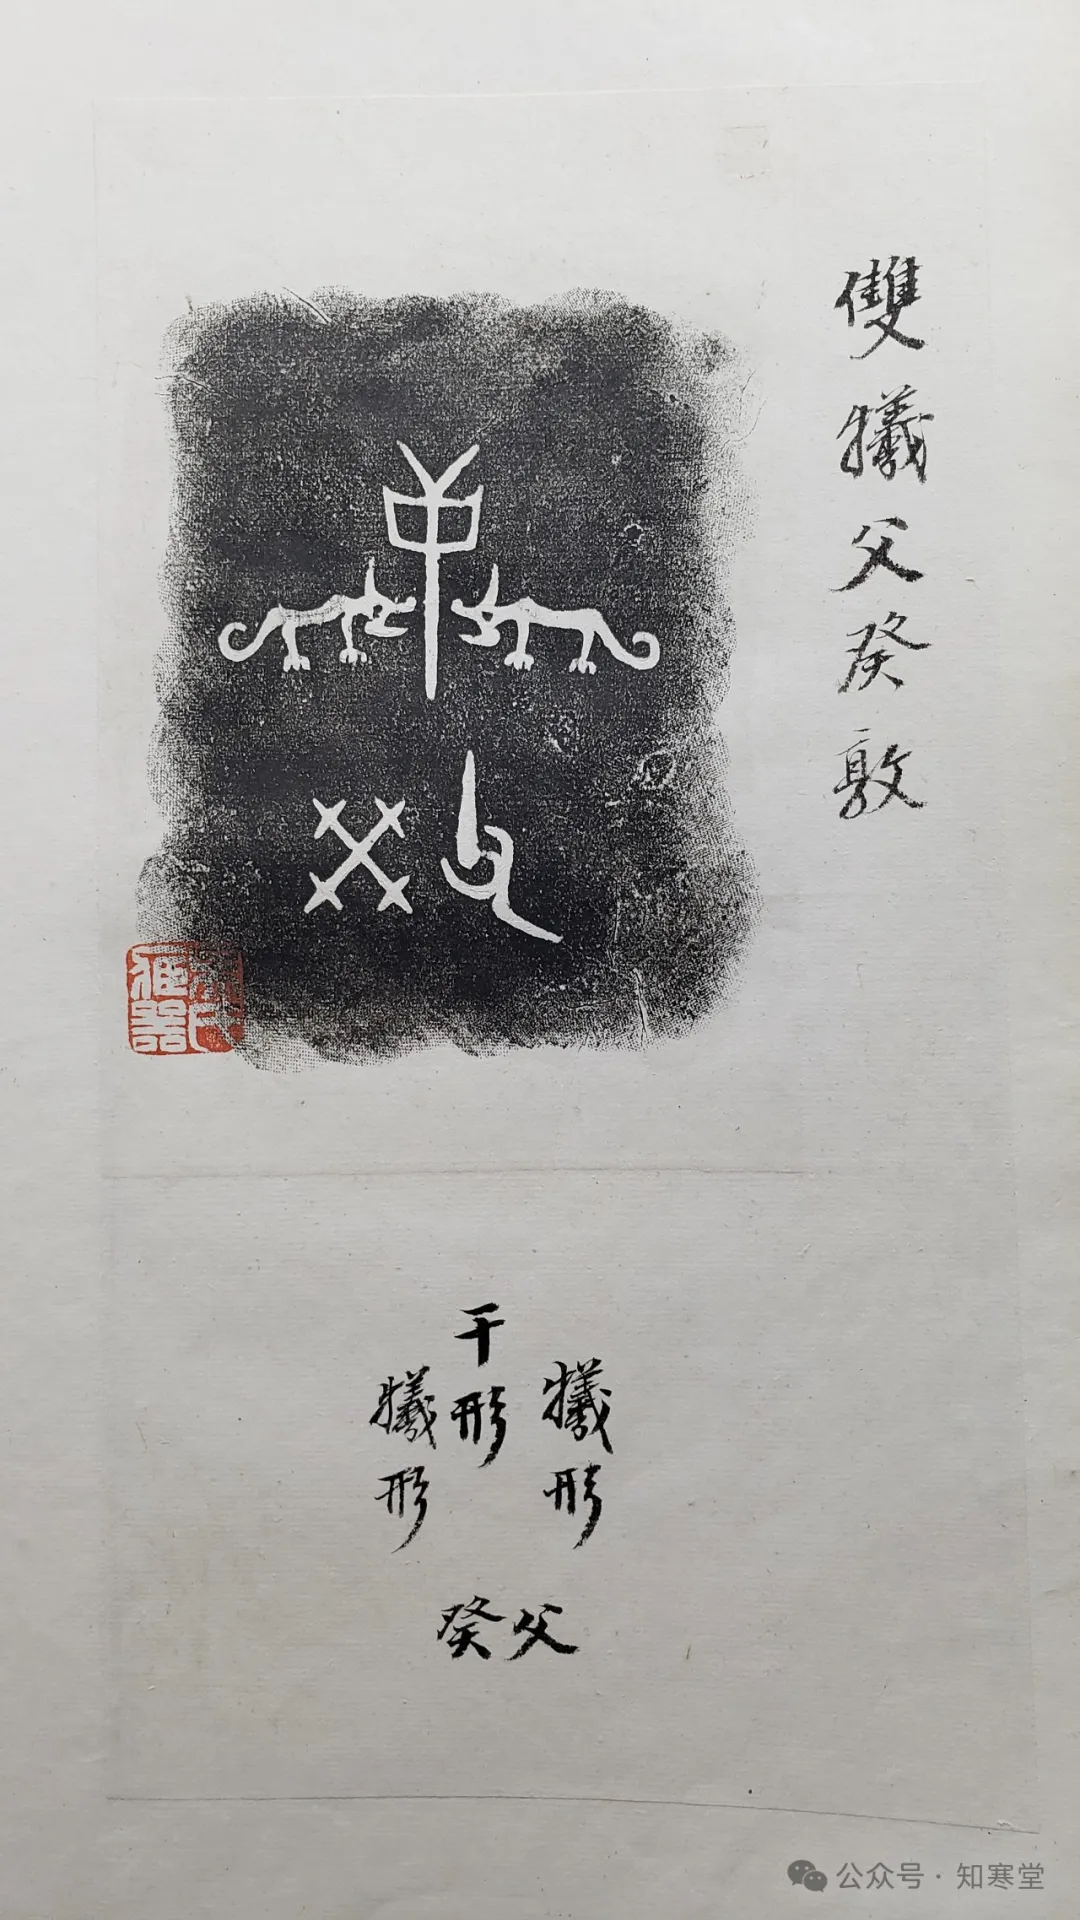 雙犧父癸敦
父
癸
干形
犧形
犧形
癸父
公众号·知寒堂